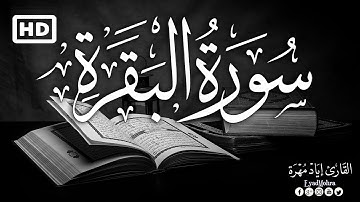 HD
سُورَةُ البَقَرَة
القَارِئ إِيَاد مُهْرَة
EyadMohra